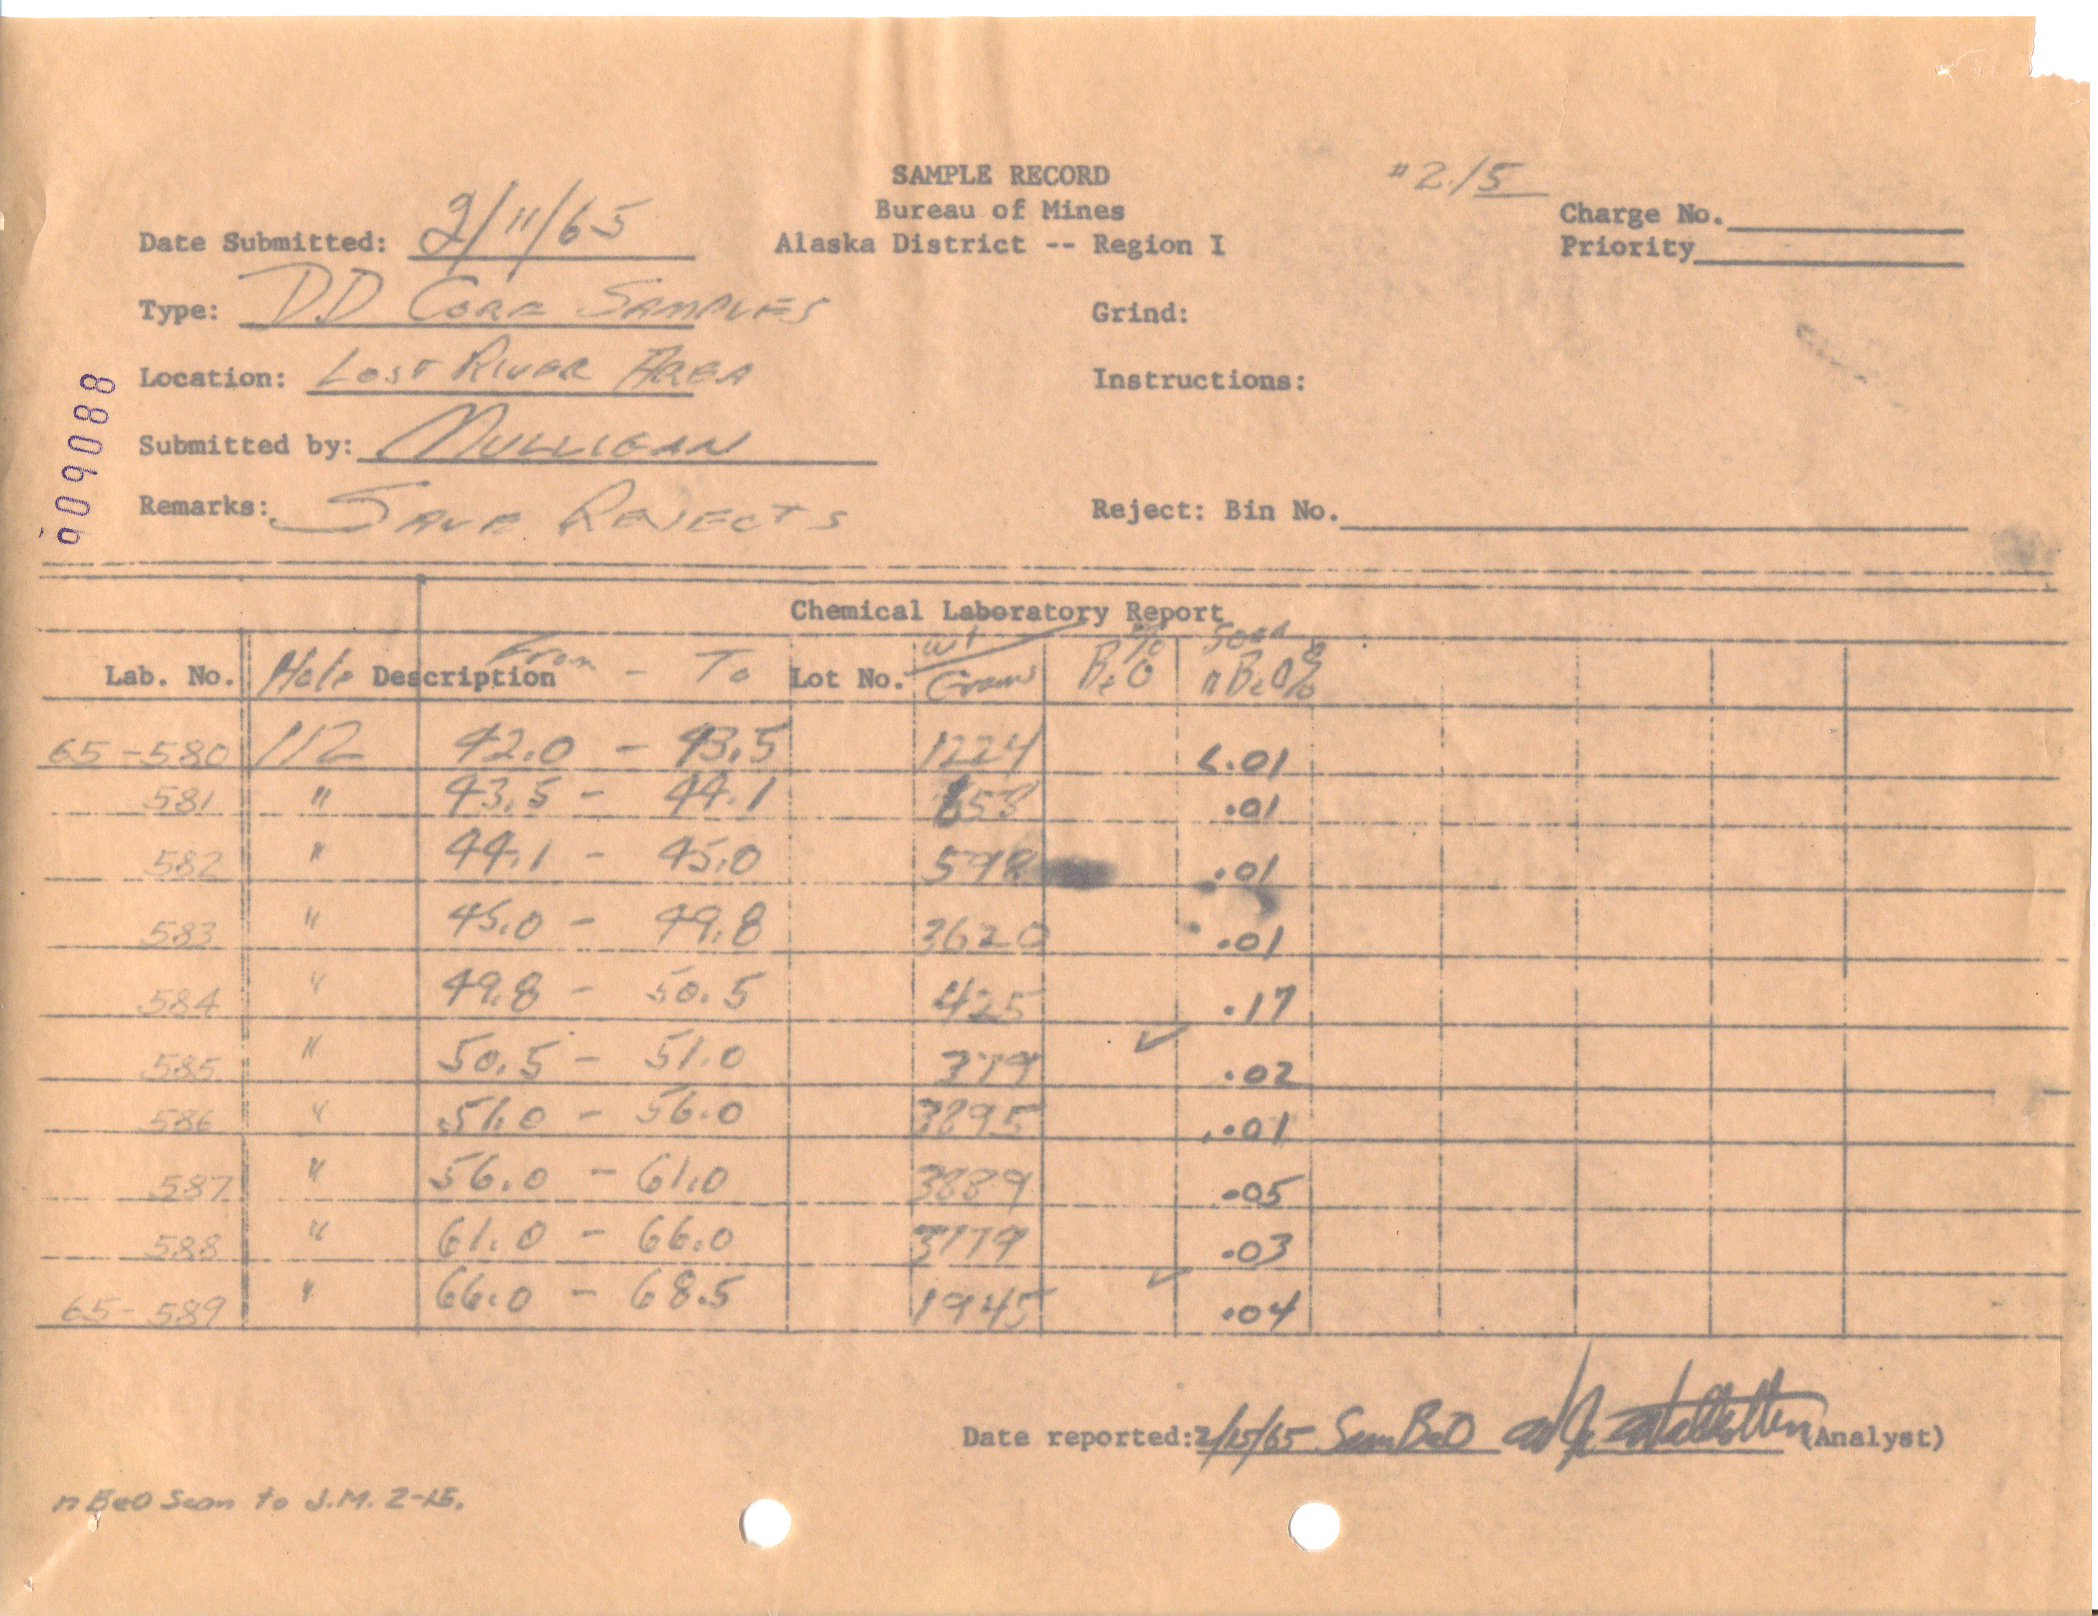 SAMPLE RECORD
#2/5
Bureau of Mines
Charge No.
Date Submitted: 2/11/65
Alaska District -- Region I
Priority
Type: DD CORE SAMPLES
Grind:
Location: LOST RIVER AREA
Instructions:
Submitted by: MULLIGAN
Remarks: SAVE REJECTS
Reject: Bin No.
909088
Chemical Laboratory Report
Lab. No. Hole Description From - To Lot No. wt Grams BeO % Scan nBeO%
65-580 112 42.0 - 43.5 1224 <.01
581 " 43.5 - 44.1 653 .01
582 " 44.1 - 45.0 598 .01
583 " 45.0 - 49.8 3620 .01
584 " 49.8 - 50.5 425 .17
585 " 50.5 - 51.0 379 ✓ .02
586 " 51.0 - 56.0 3895 .01
587 " 56.0 - 61.0 3889 .05
588 " 61.0 - 66.0 3779 .03
65-589 " 66.0 - 68.5 1945 ✓ .04
Date reported: 2/15/65 Scan BeO (Analyst)
n BeO Scan to J.M. 2-15.